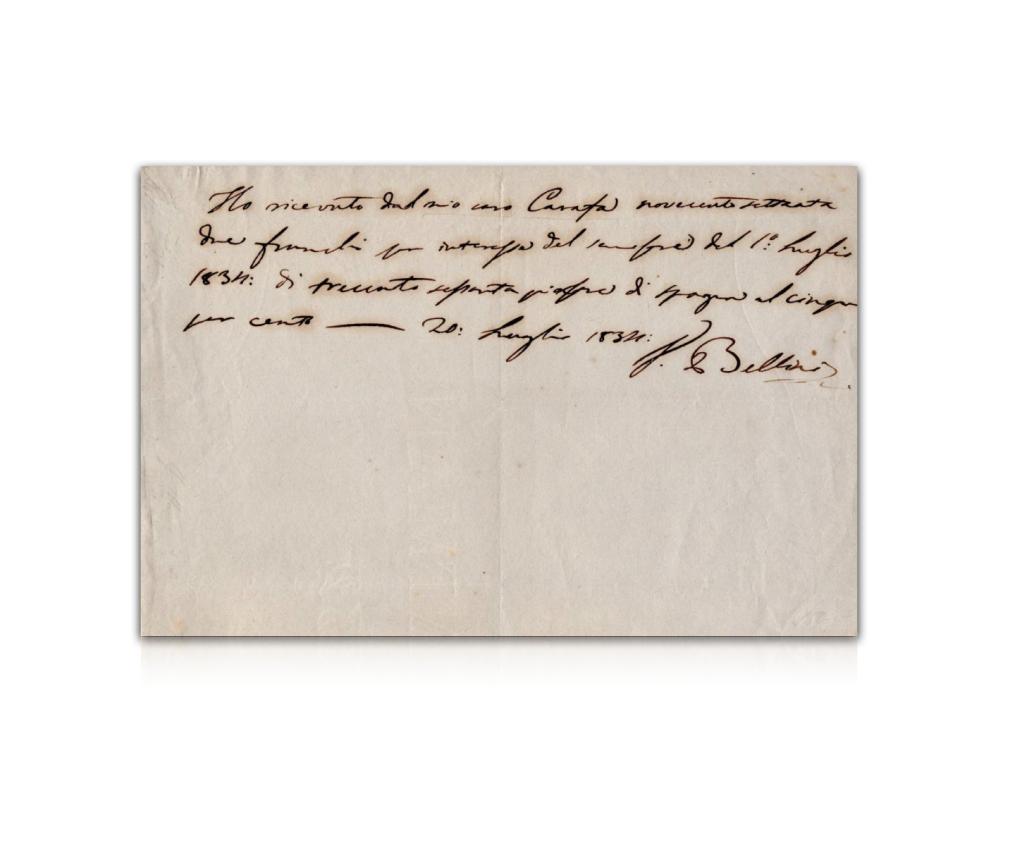 Ho ricevuto dal mio caro Carafa novecento settanta
due franchi per interesse del semestre del 1º: Luglio
1834: di trecento sessanta piastre di Spagna al cinque
per cento — 20: Luglio 1834:
V. Bellini